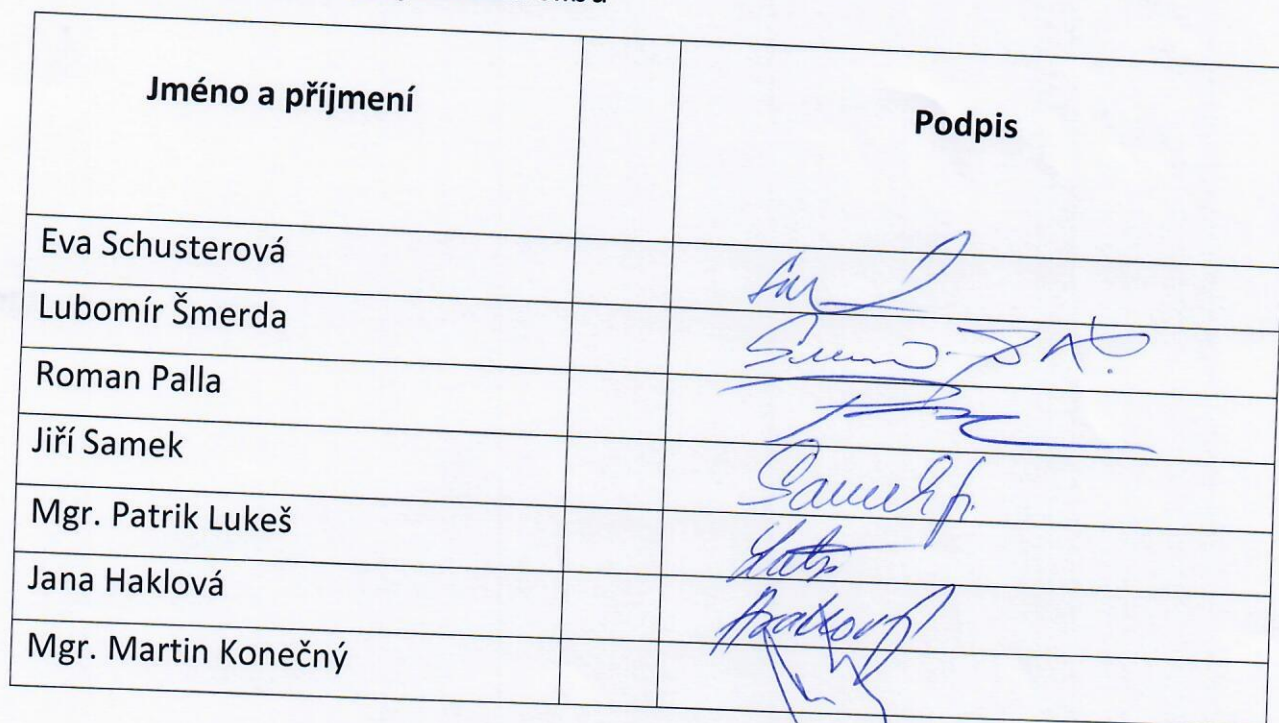 Jméno a příjmení Podpis
Eva Schusterová
Lubomír Šmerda
Roman Palla
Jiří Samek Samek jr.
Mgr. Patrik Lukeš
Jana Haklová
Mgr. Martin Konečný